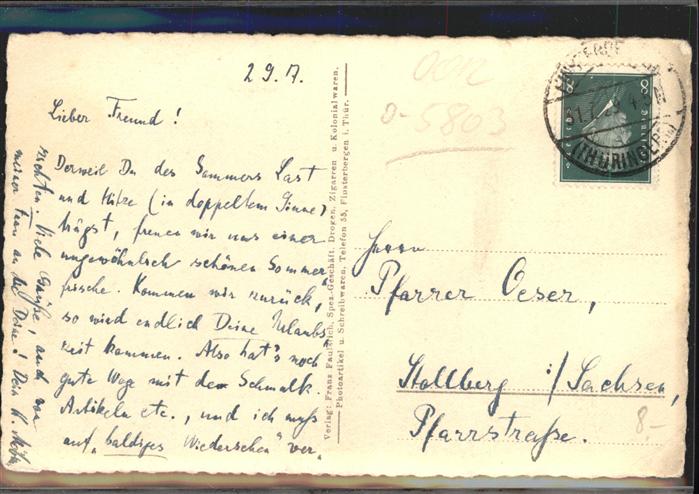 29. 7.
Lieber Freund!
Derweil Du des Sommers Last
und Hitze (in doppeltem Sinne)
trägst, freuen wir uns einer
ungewöhnlich schönen Sommer-
frische. Kommen wir zurück,
so wird endlich Deine Urlaubs-
zeit kommen. Also hat's noch
gute Wege mit den Schmalk.
Artikeln etc., und ich muß
auf „baldiges Wiedersehen" ver-
zichten. Viele Grüße, auch von
meiner Frau an die Deine! Dein
Verlag: Franz Faulstich, Spez.-Geschäft, Drogen, Zigarren u. Kolonialwaren.
Photoartikel u. Schreibwaren, Telefon 55, Finsterbergen i. Thür.
0-5803
8 8
31.7.
(THÜRINGERW)
Herrn
Pfarrer Oeser,
Stollberg i/Sachsen,
Pfarrstraße.
8.-